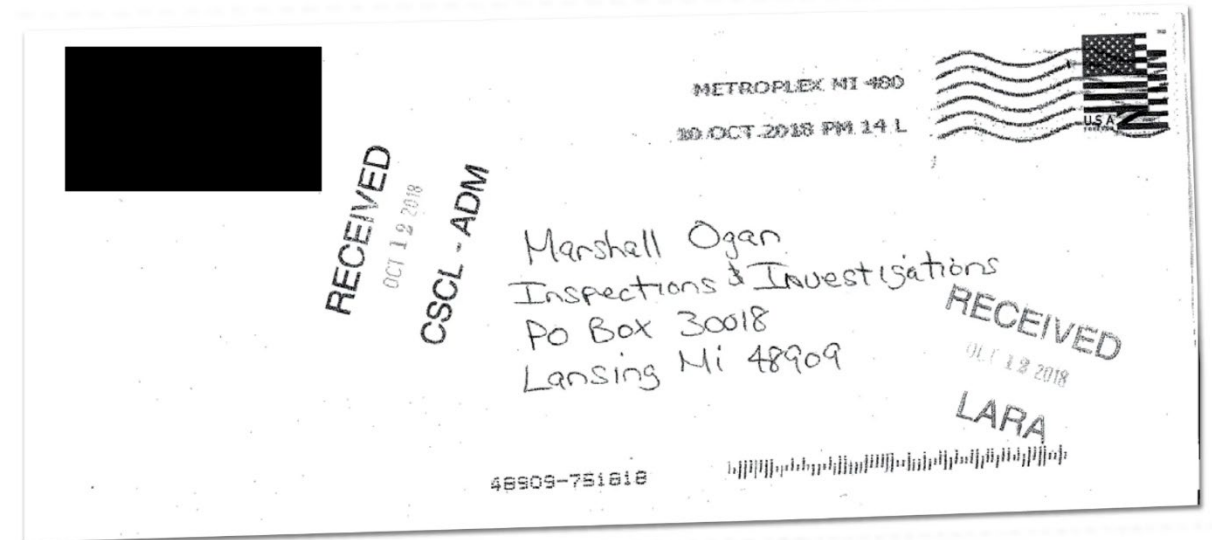 METROPLEX MI 480
10 OCT 2018 PM 14 L
USA
FOREVER
RECEIVED
OCT 12 2018
CSCL - ADM
Marshall Ogan
Inspections & Investigations
PO Box 30018
Lansing Mi 48909
RECEIVED
OCT 12 2018
LARA
48909-751818